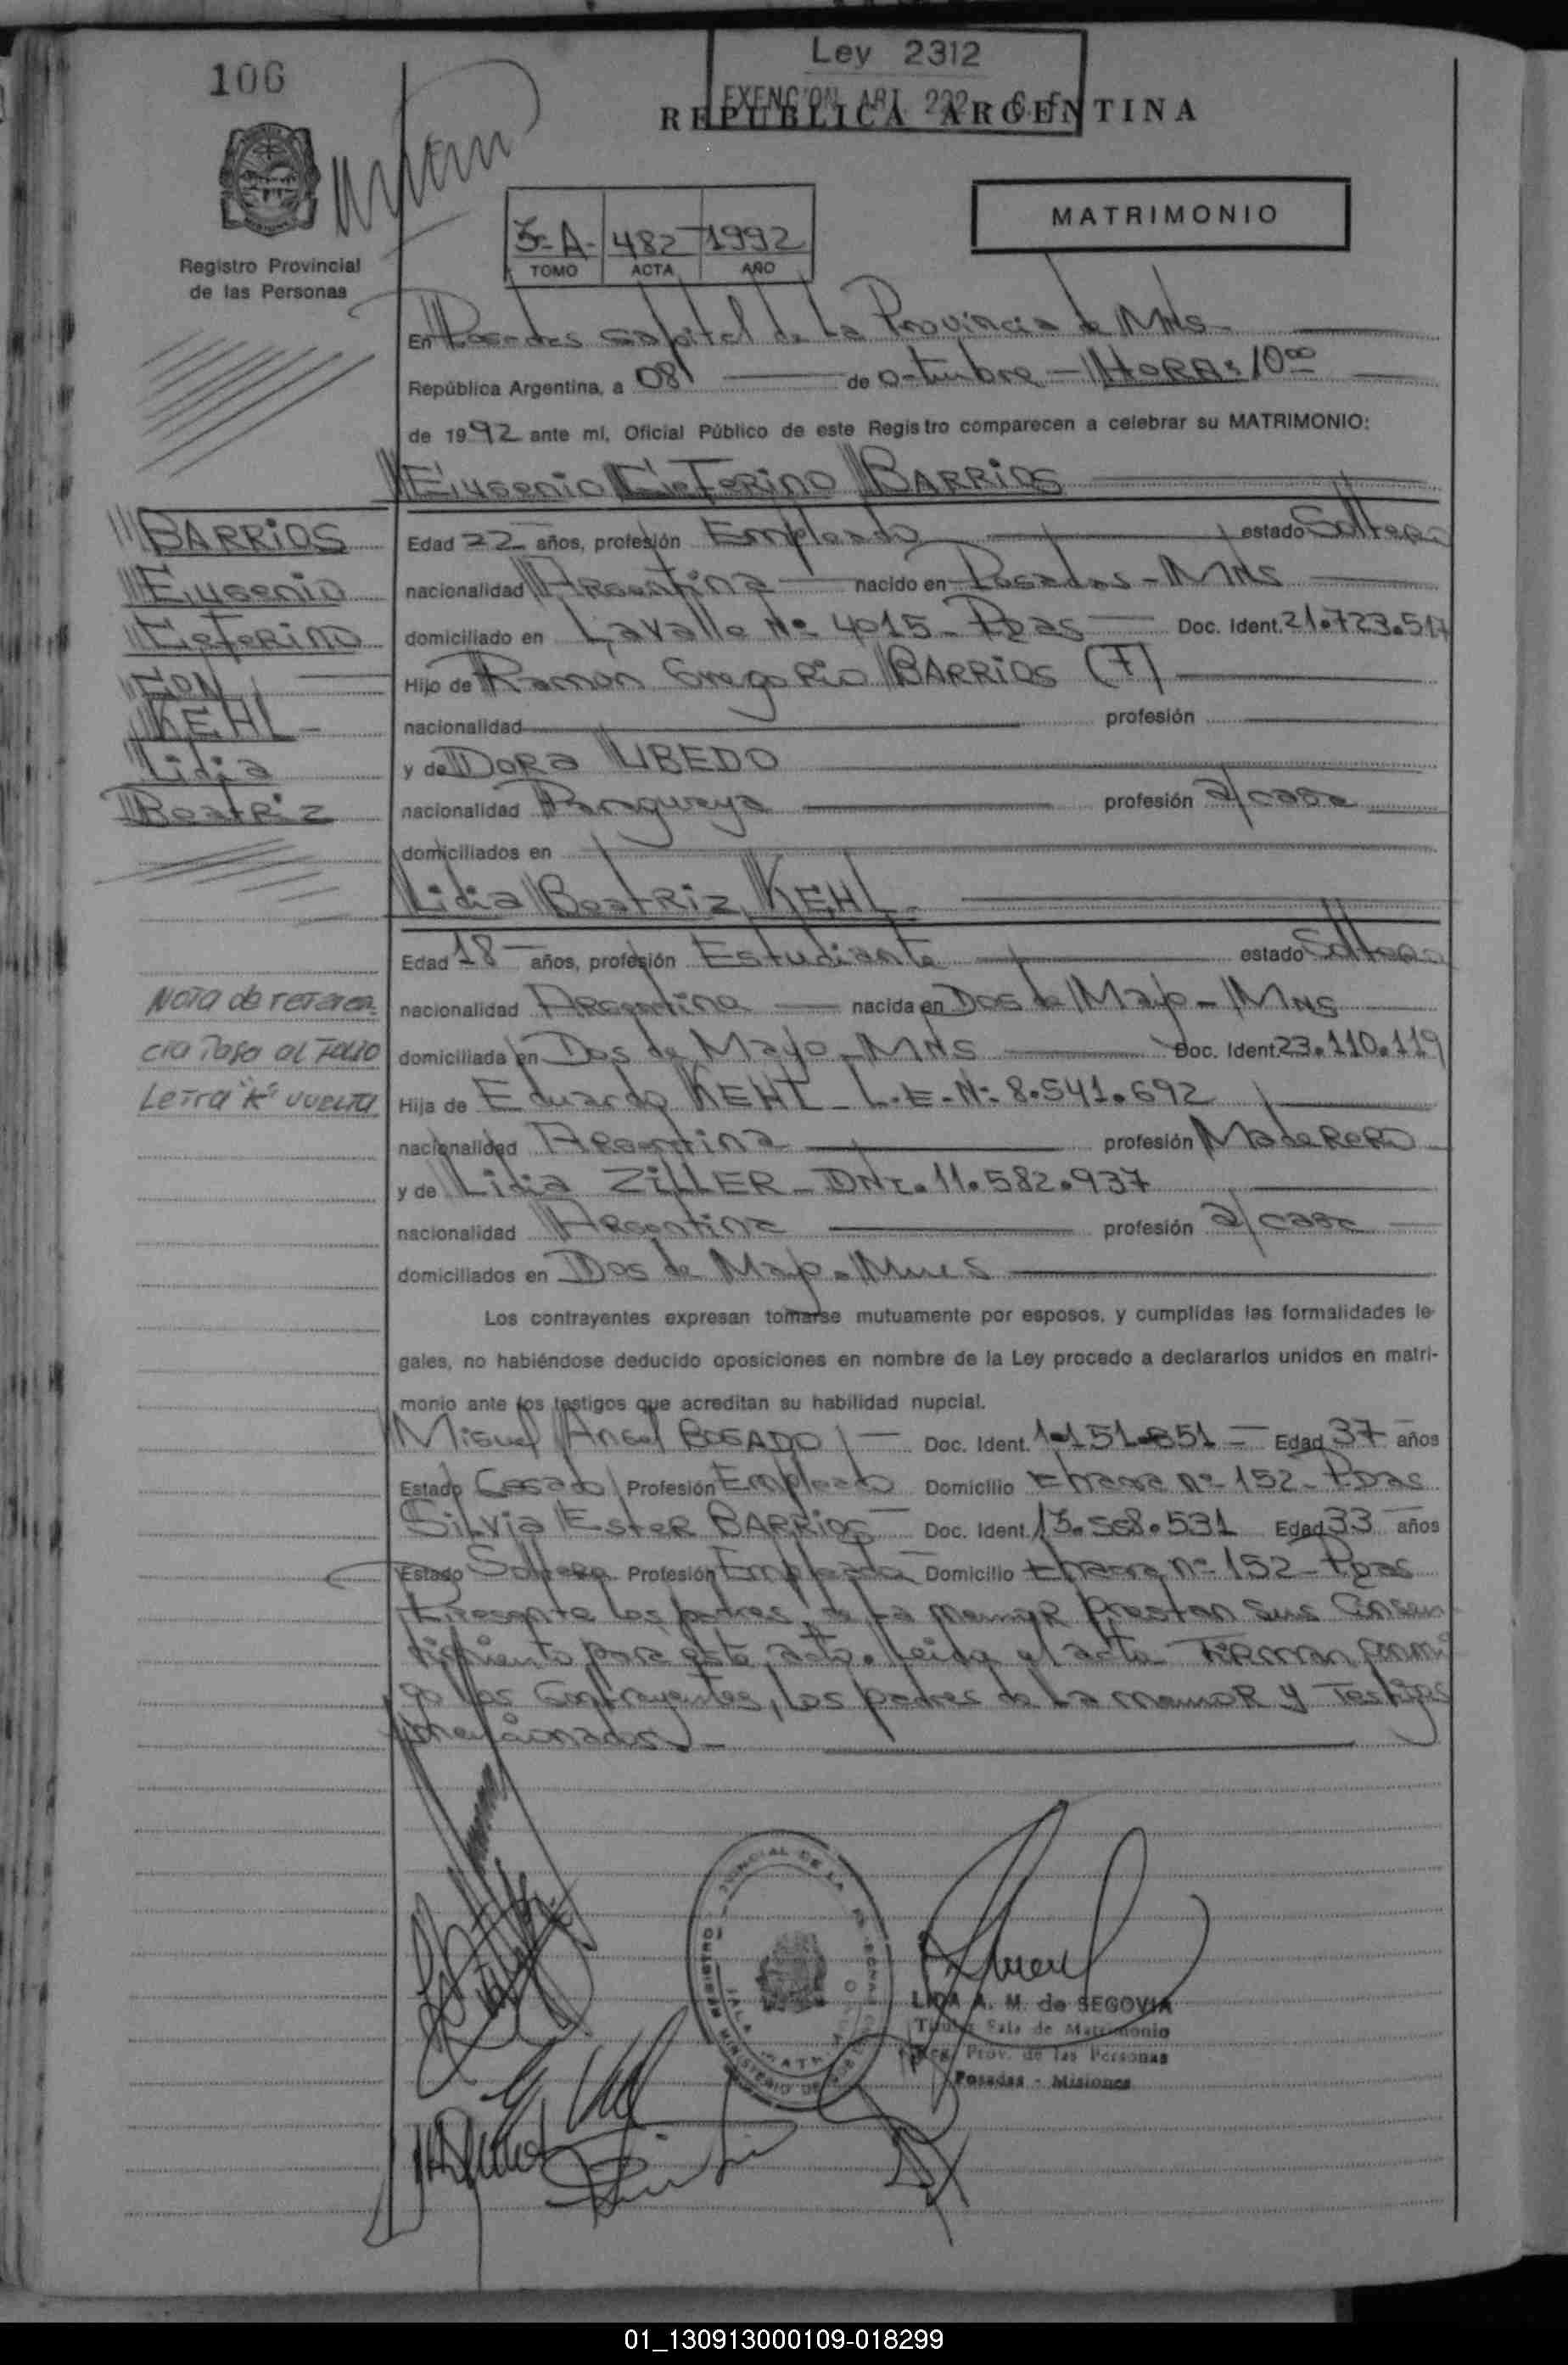 106
Ley 2312
EXENCION ART. 222
REPUBLICA ARGENTINA
Registro Provincial
de las Personas
3-A- 482 1992
TOMO ACTA AÑO
MATRIMONIO
En Posadas capital de La Provincia de MNS-
República Argentina, a 08 de octubre - HORA: 10 00
de 1992 ante mí, Oficial Público de este Registro comparecen a celebrar su MATRIMONIO:
Eusenio CeFerino BARRiOS
BARRiOS
Eusenio
CeFerino
CON
KEHL-
Lidia
Beatriz
Edad 22 años, profesión Empleado estado Soltero
nacionalidad Argentina nacido en Posadas - MNS
domiciliado en Lavalle Nº 4015 - Pdas Doc. Ident. 21.723.517
Hijo de Ramon Gregorio BARRiOS (F)
nacionalidad profesión
y de Dora UBEDO
nacionalidad Paraguaya profesión a/casa
domiciliados en
Lidia Beatriz KEHL-
Edad 18 años, profesión Estudiante estado Soltera
nacionalidad Argentina nacida en Dos de Mayo - MNS
domiciliada en Dos de Mayo - MNS Doc. Ident. 23.110.119
Hija de Eduardo KEHL - L.E.Nº 8.541.692
nacionalidad Argentina profesión Maderero
y de Lidia ZiLLER - DNI. 11.582.937
nacionalidad Argentina profesión a/casa
domiciliados en Dos de Mayo - Mnes
Nota de referen-
cia Paso al Folio
Letra "K" vuelta
Los contrayentes expresan tomarse mutuamente por esposos, y cumplidas las formalidades le-
gales, no habiéndose deducido oposiciones en nombre de la Ley procedo a declararlos unidos en matri-
monio ante los testigos que acreditan su habilidad nupcial.
Miguel Angel BOGADO Doc. Ident. Edad 37 años
Estado Casado Profesión Empleado Domicilio Nº 152 - Pdas
Silvia Ester BARRiOS Doc. Ident. 13.558.531 Edad 33 años
Estado Soltera Profesión Empleada Domicilio Nº 152 - Pdas
Presente los padres de La menor Prestan sus Consen
timiento para este acto. Leida el acta Firman conmi
go los Contrayentes, los padres de La menor y Testigos
mencionados.-
LIDA A. M. de SEGOVIA
Titular Sala de Matrimonio
Reg. Prov. de las Personas
Posadas - Misiones
01_130913000109-018299